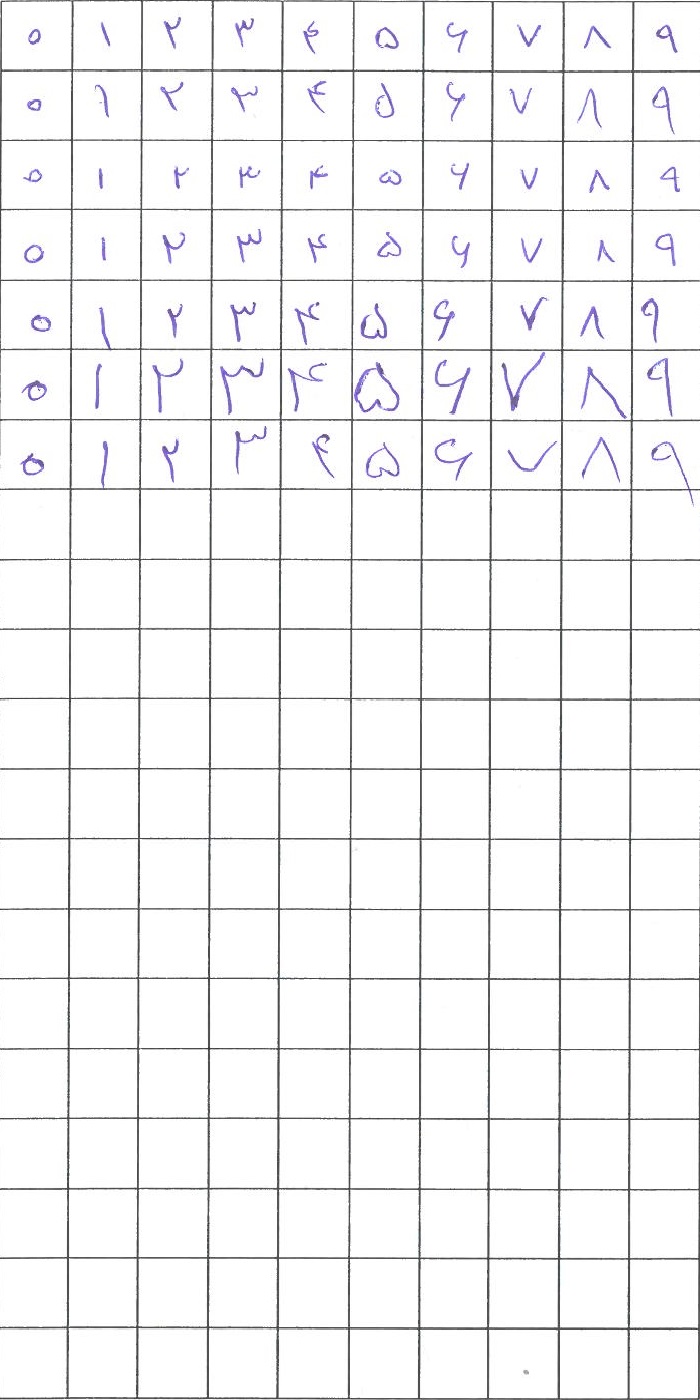 ۰ ۱ ۲ ۳ ۴ ۵ ۶ ۷ ۸ ۹
۰ ۱ ۲ ۳ ۴ ۵ ۶ ۷ ۸ ۹
۰ ۱ ۲ ۳ ۴ ۵ ۶ ۷ ۸ ۹
۰ ۱ ۲ ۳ ۴ ۵ ۶ ۷ ۸ ۹
۰ ۱ ۲ ۳ ۴ ۵ ۶ ۷ ۸ ۹
۰ ۱ ۲ ۳ ۴ ۵ ۶ ۷ ۸ ۹
۰ ۱ ۲ ۳ ۴ ۵ ۶ ۷ ۸ ۹